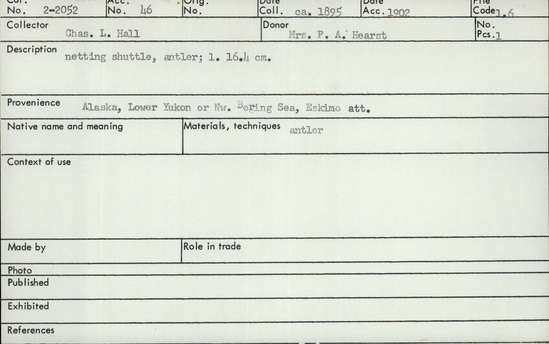 Cat. Acc. Orig. Date Date File
No. 2-2052 No. 46 No. Coll. ca. 1895 Acc. 1902 Code 1.6
Collector Donor No.
Chas. L. Hall Mrs. P. A. Hearst Pcs. 1
Description netting shuttle, antler; l. 16.4 cm.
Provenience Alaska, Lower Yukon or Nw. Bering Sea, Eskimo att.
Native name and meaning Materials, techniques antler
Context of use
Made by Role in trade
Photo
Published
Exhibited
References